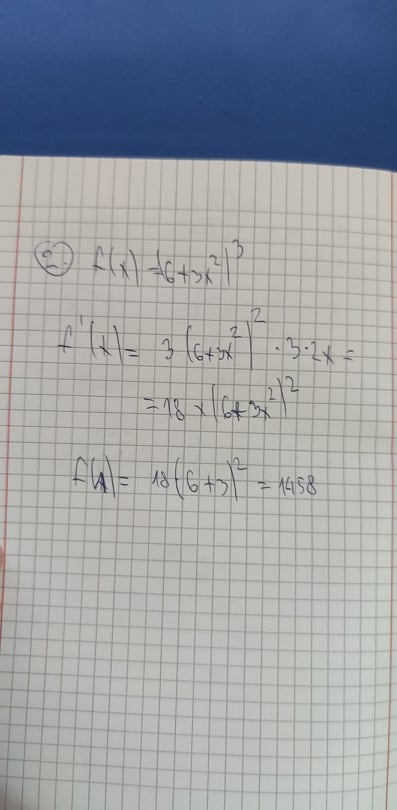 2. f(x) = (6+3x²)³
f'(x) = 3(6+3x²)² · 3·2x =
= 18x(6+3x²)²
f(1) = 18(6+3)² = 1458